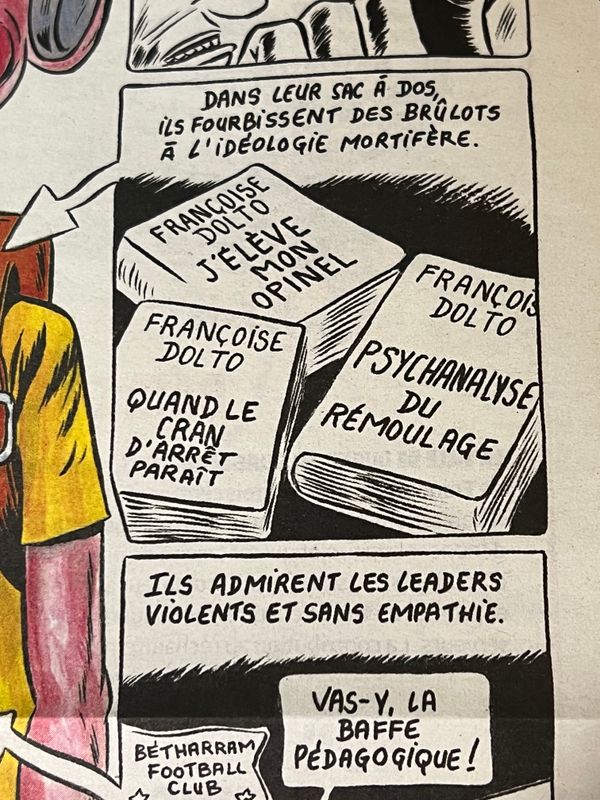 DANS LEUR SAC À DOS,
ILS FOURBISSENT DES BRÛLOTS
À L'IDÉOLOGIE MORTIFÈRE.
FRANÇOISE
DOLTO
J'ÉLÈVE
MON
OPINEL
FRANÇOISE
DOLTO
QUAND LE
CRAN
D'ARRÊT
PARAÎT
FRANÇOIS
DOLTO
PSYCHANALYSE
DU
RÉMOULAGE
ILS ADMIRENT LES LEADERS
VIOLENTS ET SANS EMPATHIE.
VAS-Y, LA
BAFFE
PÉDAGOGIQUE !
BÉTHARRAM
FOOTBALL
CLUB